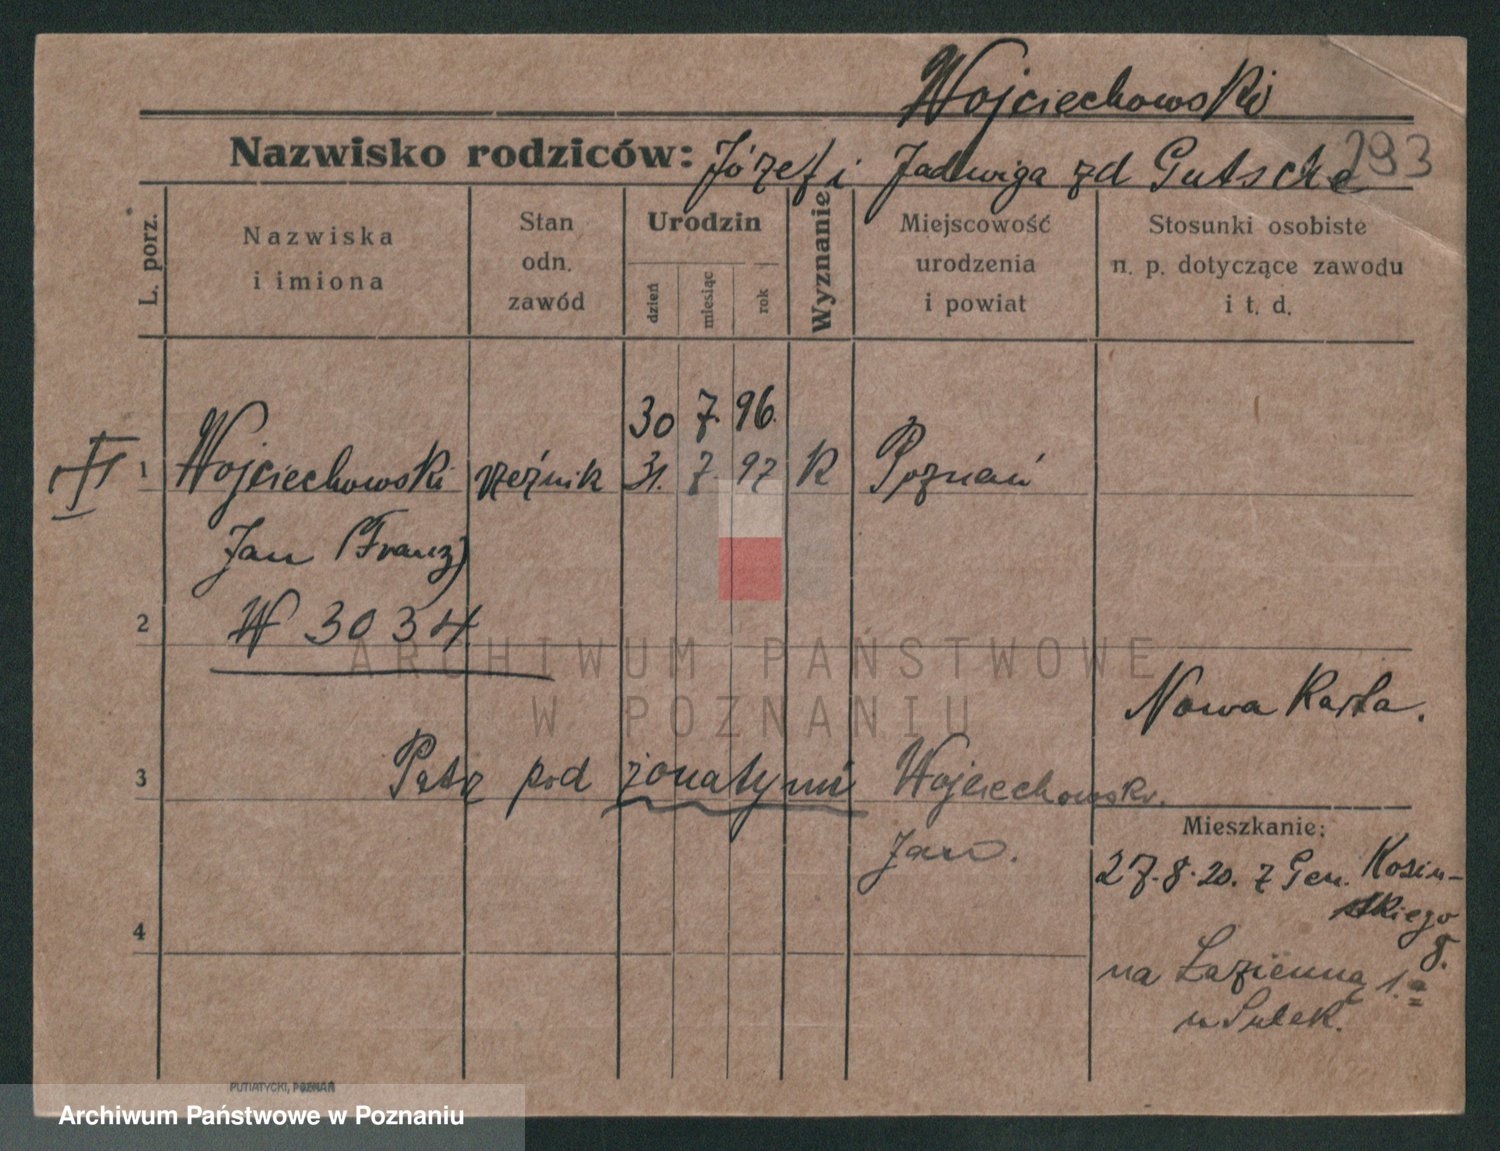 Wojciechowski
Nazwisko rodziców: Józef i Jadwiga zd Gutsche
293
L. porz.
Nazwiska
i imiona
Stan
odn.
zawód
Urodzin
dzień
miesiąc
rok
Wyznanie
Miejscowość
urodzenia
i powiat
Stosunki osobiste
n. p. dotyczące zawodu
i t. d.
30 7. 96.
1 Wojciechowski rzeźnik 31. 7. 97 K Poznań
Jan (Franz)
2 W 3034
ARCHIWUM PAŃSTWOWE
W POZNANIU
Nowa Karta.
3 Patz pod żonatymi Wojciechowski
Jan.
Mieszkanie:
27.8.20. z Gen. Kosiń-
skiego
8.
4
na Łazienną 1.a
u
PUTIATYCKI, POZNAŃ
Archiwum Państwowe w Poznaniu